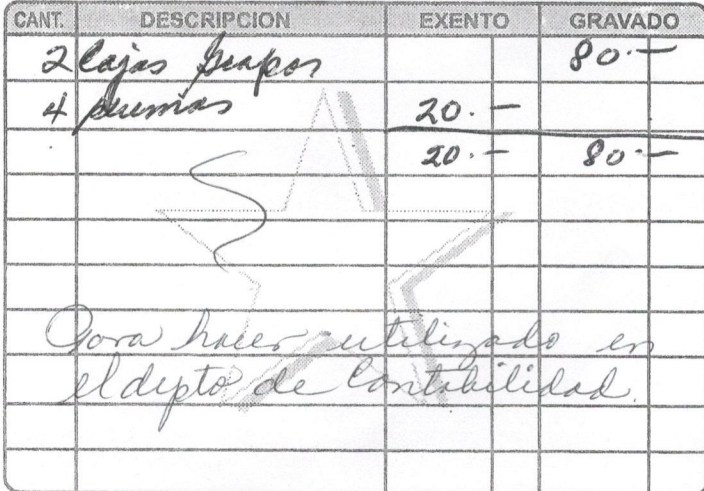 CANT. DESCRIPCION EXENTO GRAVADO
2 Cajas Grapas 80.—
4 plumas 20.—
20.— 80.—
Para hacer utilizado en
el depto de Contabilidad.